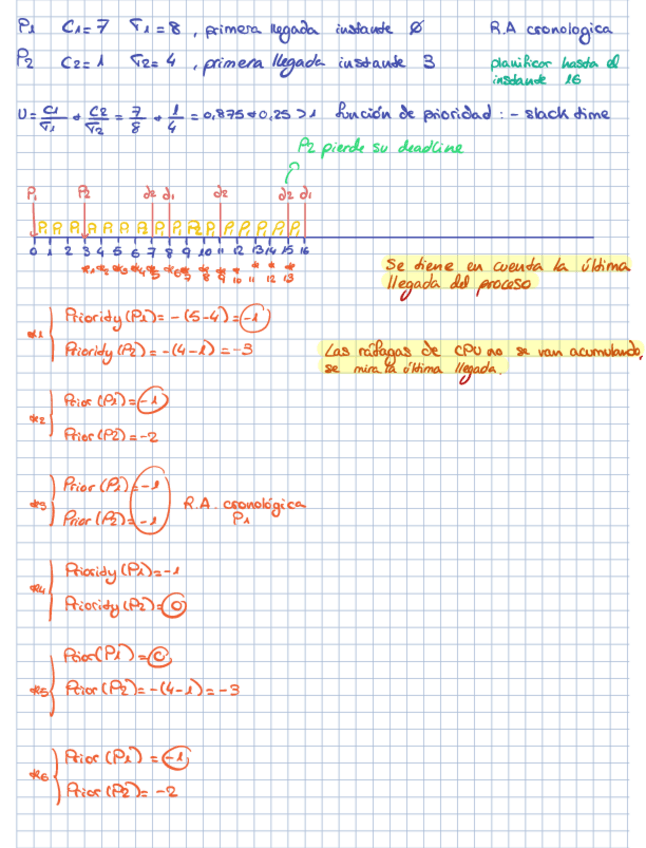 P1 C1=7 T1=8, primera llegada instante 0 R.A cronologica
P2 C2=1 T2=4, primera llegada instante 3 planificar hasta el
instante 16
U=C1/T1+C2/T2=7/8+1/4=0,875+0,25>1 función de prioridad: -slack time
P2 pierde su deadline
P1 P2 d2 d1 d2 d2 d1
0 1 2 3 4 5 6 7 8 9 10 11 12 13 14 15 16
*1 *2 *3 *4 *5 *6 *7 *8 *9 *10 *11 *12 *13
Se tiene en cuenta la última
llegada del proceso
*1 Priority(P1)=-(5-4)=-1
Priority(P2)=-(4-1)=-3
Las ráfagas de CPU no se van acumulando,
se mira la última llegada.
*2 Prior(P1)=-1
Prior(P2)=-2
*3 Prior(P1)=-1
Prior(P2)=-1
R.A. cronológica
P1
*4 Priority(P1)=-1
Priority(P2)=0
*5 Prior(P1)=0
Prior(P2)=-(4-1)=-3
*6 Prior(P1)=-1
Prior(P2)=-2